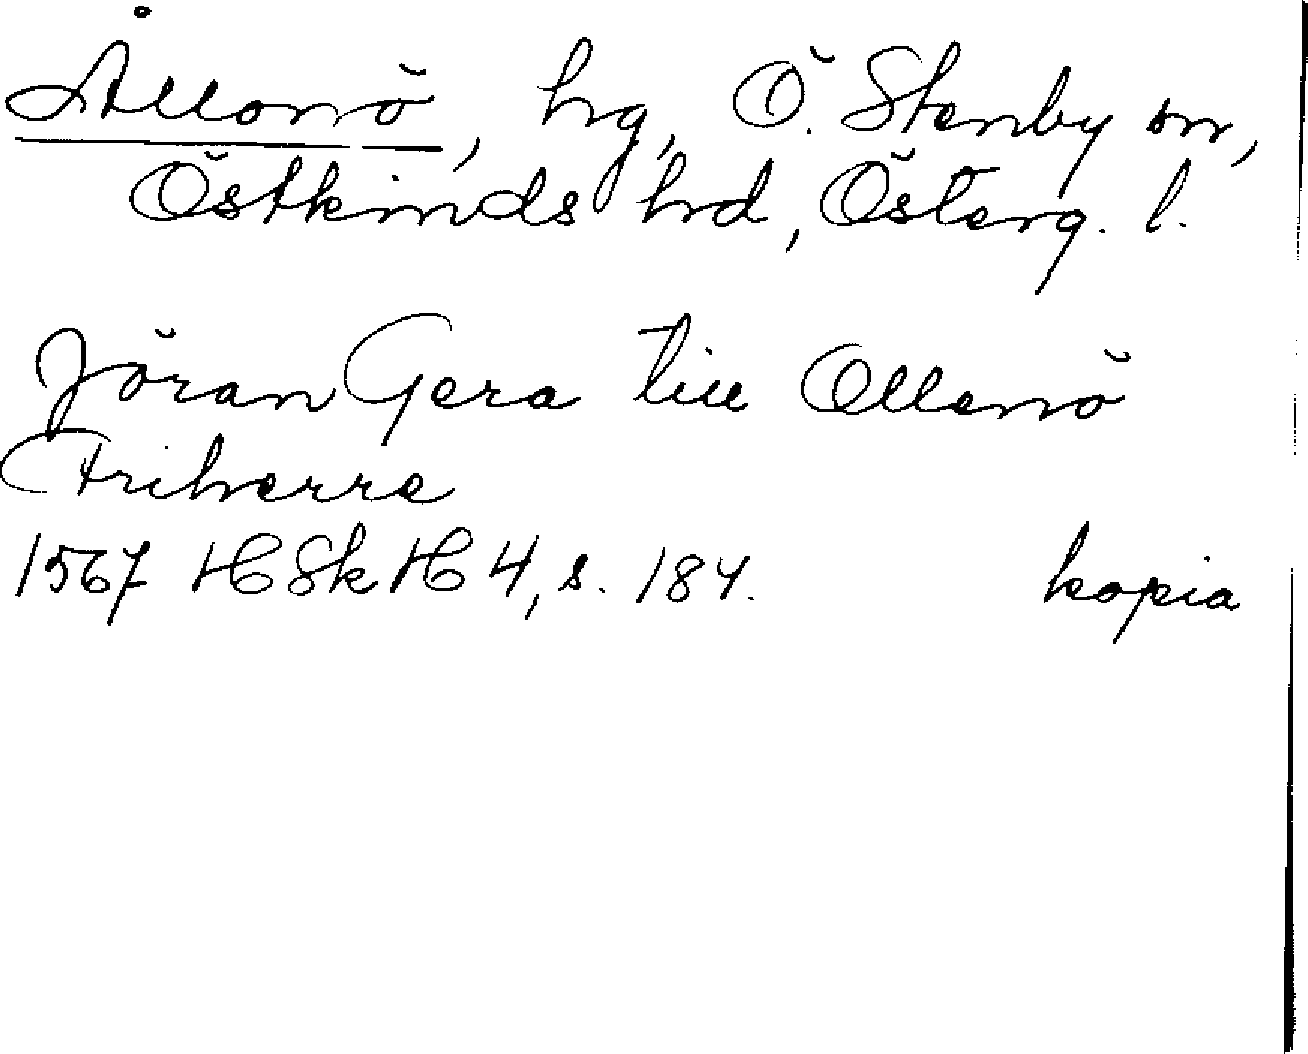 Ållonö, hrg, Ö. Stenby sn,
Östkinds hrd, Österg. l.
Jöran Gera till Ollenö
Friherre
1567 HSkH 4, s. 184. kopia